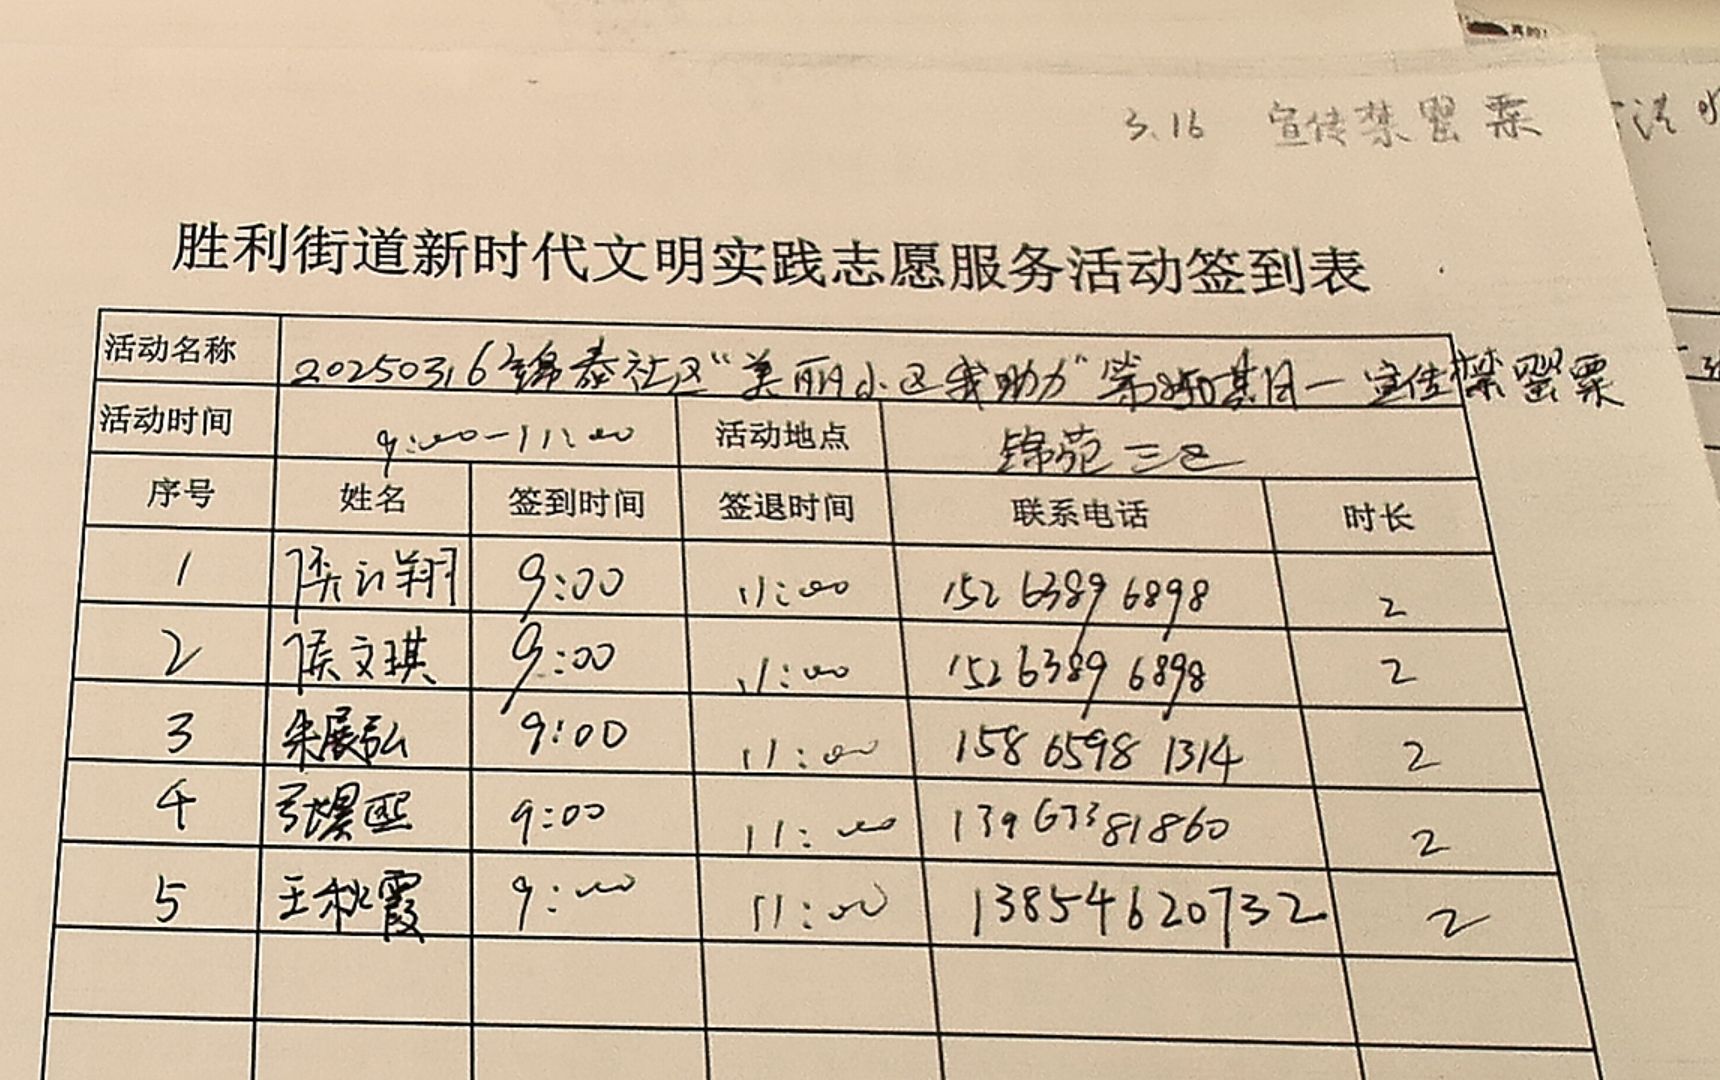 真的!
3.16 宣传禁罂粟
胜利街道新时代文明实践志愿服务活动签到表
活动名称 20250316锦泰社区"美丽小区我助力"第 期 一宣传禁罂粟
活动时间 9:00-11:00 活动地点 锦苑三区
序号 姓名 签到时间 签退时间 联系电话 时长
1 侯 翔 9:00 11:00 152 6389 6898 2
2 侯文琪 9:00 11:00 152 6389 6898 2
3 朱展弘 9:00 11:00 158 6598 1314 2
4 张昊熙 9:00 11:00 139 673 81860 2
5 王秋霞 9:00 11:00 13854620732 2